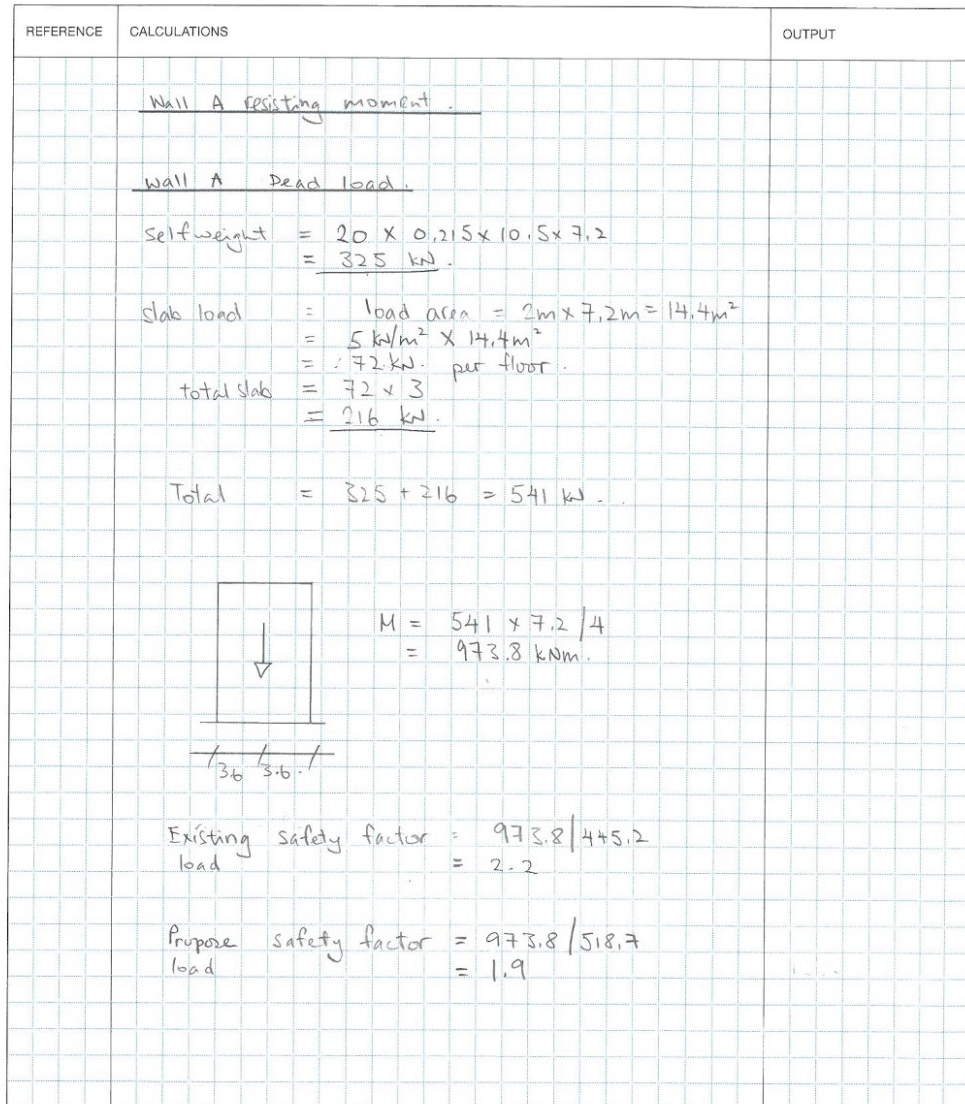 REFERENCE CALCULATIONS OUTPUT
Wall A resisting moment.
Wall A Dead load.
Selfweight = 20 x 0.215 x 10.5 x 7.2
= 325 kN.
Slab load = load area = 2m x 7.2m = 14.4m²
= 5 kN/m² x 14.4m²
= 72 kN. per floor.
total slab = 72 x 3
= 216 kN.
Total = 325 + 216 = 541 kN.
M = 541 x 7.2 / 4
= 973.8 kNm.
3.6 3.6
Existing safety factor = 973.8 / 445.2
load = 2.2
Propose safety factor = 973.8 / 518.7
load = 1.9